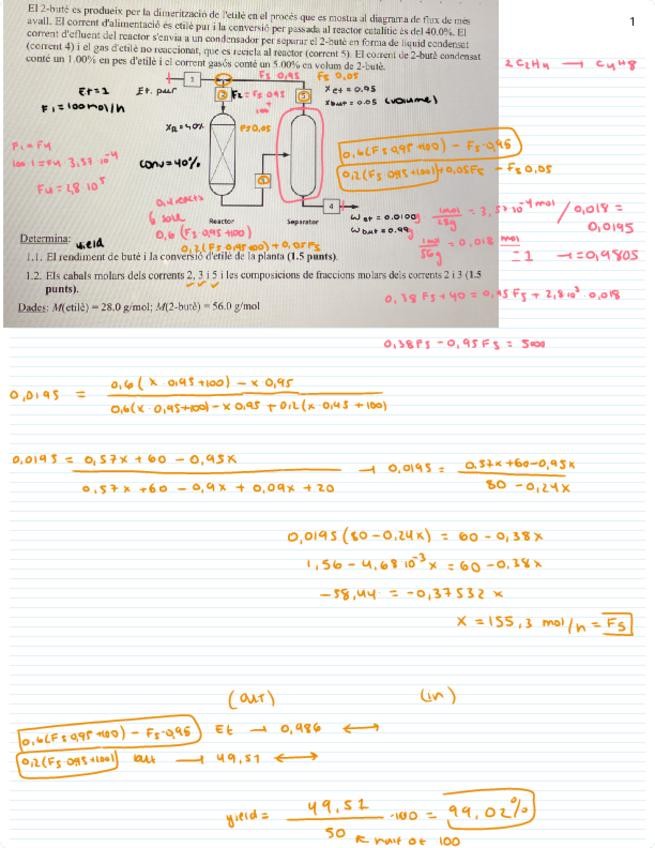 El 2-butè es produeix per la dimerització de l'etilè en el procés que es mostra al diagrama de flux de més
avall. El corrent d'alimentació és etilè pur i la conversió per passada al reactor catalític és del 40.0%. El
corrent d'efluent del reactor s'envia a un condensador per separar el 2-butè en forma de líquid condensat
(corrent 4) i el gas d'etilè no reaccionat, que es recicla al reactor (corrent 5). El corrent de 2-butè condensat
conté un 1.00% en pes d'etilè i el corrent gasós conté un 5.00% en volum de 2-butè.
1
2C2H4 → C4H8
F5 0,95 F5 0,05
1
Et=1 Et. pur
F1=100mol/h
2 F2= F5 0,95
+
100
5
x et = 0.95
x but = 0.05 (volume)
F1=F4
XR=40%
F5 0,05
0,6(F5 0,95 +100) - F5·0,95
0,2(F5 0,95+100)+0,05F5 - F5 0,05
100·1=F4 3,57 10⁻⁴
F4=2,8 10⁵
conv=40%
3
4
0,4 reacts
Reactor
Separator
0,6 (F5 0,95 +100)
0,2(F5 0,95+100) + 0,05F5
w et = 0.0100g 1mol/28g = 3,57 10⁻⁴ mol / 0,018 =
0,0195
w but = 0.99g 1mol/56g = 0,018 mol
-1 → =0,9805
Determina:
yield
1.1. El rendiment de butè i la conversió d'etilè de la planta (1.5 punts).
1.2. Els cabals molars dels corrents 2, 3 i 5 i les composicions de fraccions molars dels corrents 2 i 3 (1.5
punts).
Dades: M(etilè) = 28.0 g/mol; M(2-butè) = 56.0 g/mol
0,38 F5 + 40 = 0,95 F5 + 2,8 10⁵ · 0,018
0,38F5 - 0,95F5 = 5000
0,0195 = 0,6(x 0,95+100) - x 0,95 / 0,6(x·0,95+100) - x 0,95 + 0,2(x 0,45 + 100)
0,0195 = 0,57x + 60 - 0,95x / 0,57x +60 - 0,9x + 0,09x + 20 → 0,0195 = 0,57x +60-0,95x / 80 - 0,24x
0,0195(80-0,24x) = 60 - 0,38x
1,56 - 4,68 10⁻³ x = 60 - 0,38x
-58,44 = -0,37532 x
x = 155,3 mol/h = F5
(out) (in)
0,6(F5 0,95 +100) - F5·0,95 Et → 0,986 ↔
0,2(F5 0,95+100) but → 49,51 ↔
yield = 49,51 / 50 ·100 = 99,02%
↖ half of 100